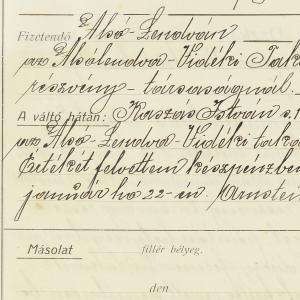 Fizetendő Alsó-Lendván
Alsólendva-Vidéki Tak
részvény-társaságnál.
A váltó hátán: Kaszás István s.
Alsó-Lendva-Vidéki taka
Értékét felvettem készpénzben
január hó 22-én.
Másolat fillér bélyeg.
den